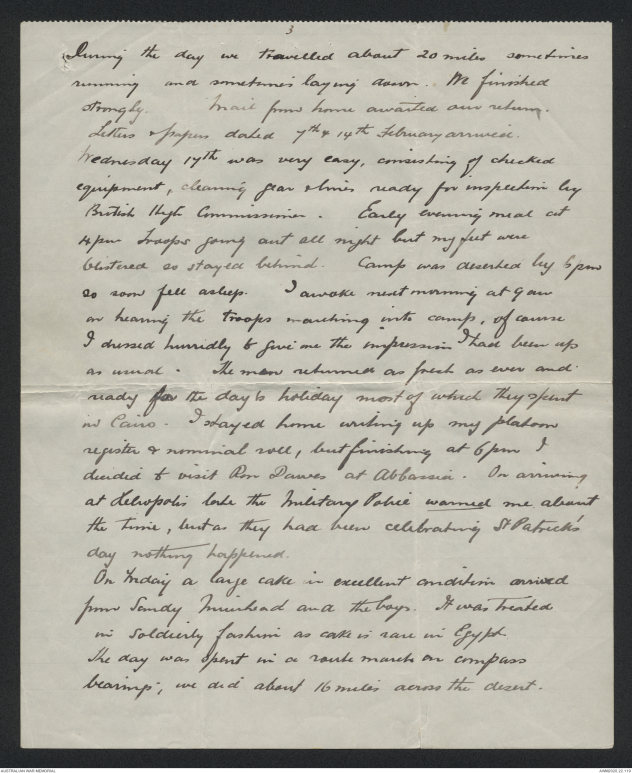 3
During the day we travelled about 20 miles sometimes
running and sometimes laying down. We finished
strongly. Mail from home awaited our return.
Letters & papers dated 7th & 14th February arrived.
Wednesday 17th was very easy, consisting of checked
equipment, cleaning gear & lines ready for inspection by
British High Commissioner. Early evening meal at
4pm Troops going out all night but my feet were
blistered so stayed behind. Camp was deserted by 6pm
so soon fell asleep. I awoke next morning at 9am
on hearing the troops marching into camp, of course
I dressed hurridly to give me the impression I had been up
as usual. The men returned as fresh as ever and
ready for the day's holiday most of which they spent
in Cairo. I stayed home writing up my platoon
register & nominal roll, but finishing at 6pm I
decided to visit Ron Dawes at Abbassia. On arriving
at Heliopolis late the Military Police warned me about
the time, but as they had been celebrating St Patrick's
day nothing happened.
On Friday a large cake in excellent condition arrived
from Sandy Muirhead and the boys. It was treated
in soldierly fashion as cake is rare in Egypt
The day was spent in a route march on compass
bearings, we did about 16 miles across the desert.
AUSTRALIAN WAR MEMORIAL